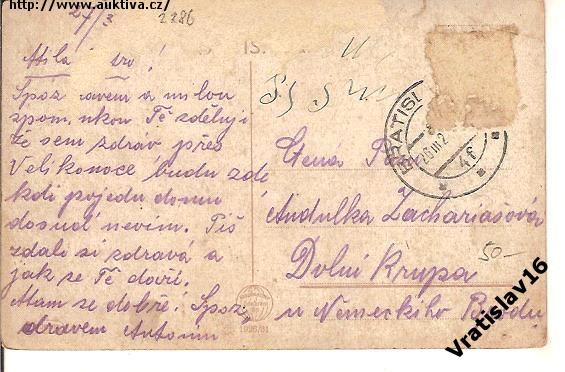 http://www.auktiva.cz/
27/3
2286
IS.
Milá
Spoz ravem a milou
zpom nkou Tě zděluji
že sem zdráv přes
Velikonoce budu zde
kdi pojedu domu
dosud nevim. Piš
zdali si zdravá a
jak se Tě daří.
Mam se dobře! Spoz
dravem Antonin
BRATISL
26.III.2
4f
Ctena
Andulka Zachariašová
50-
Dolni Krupa
u Nemeckiho Brodu
1926/31
Vratislav16